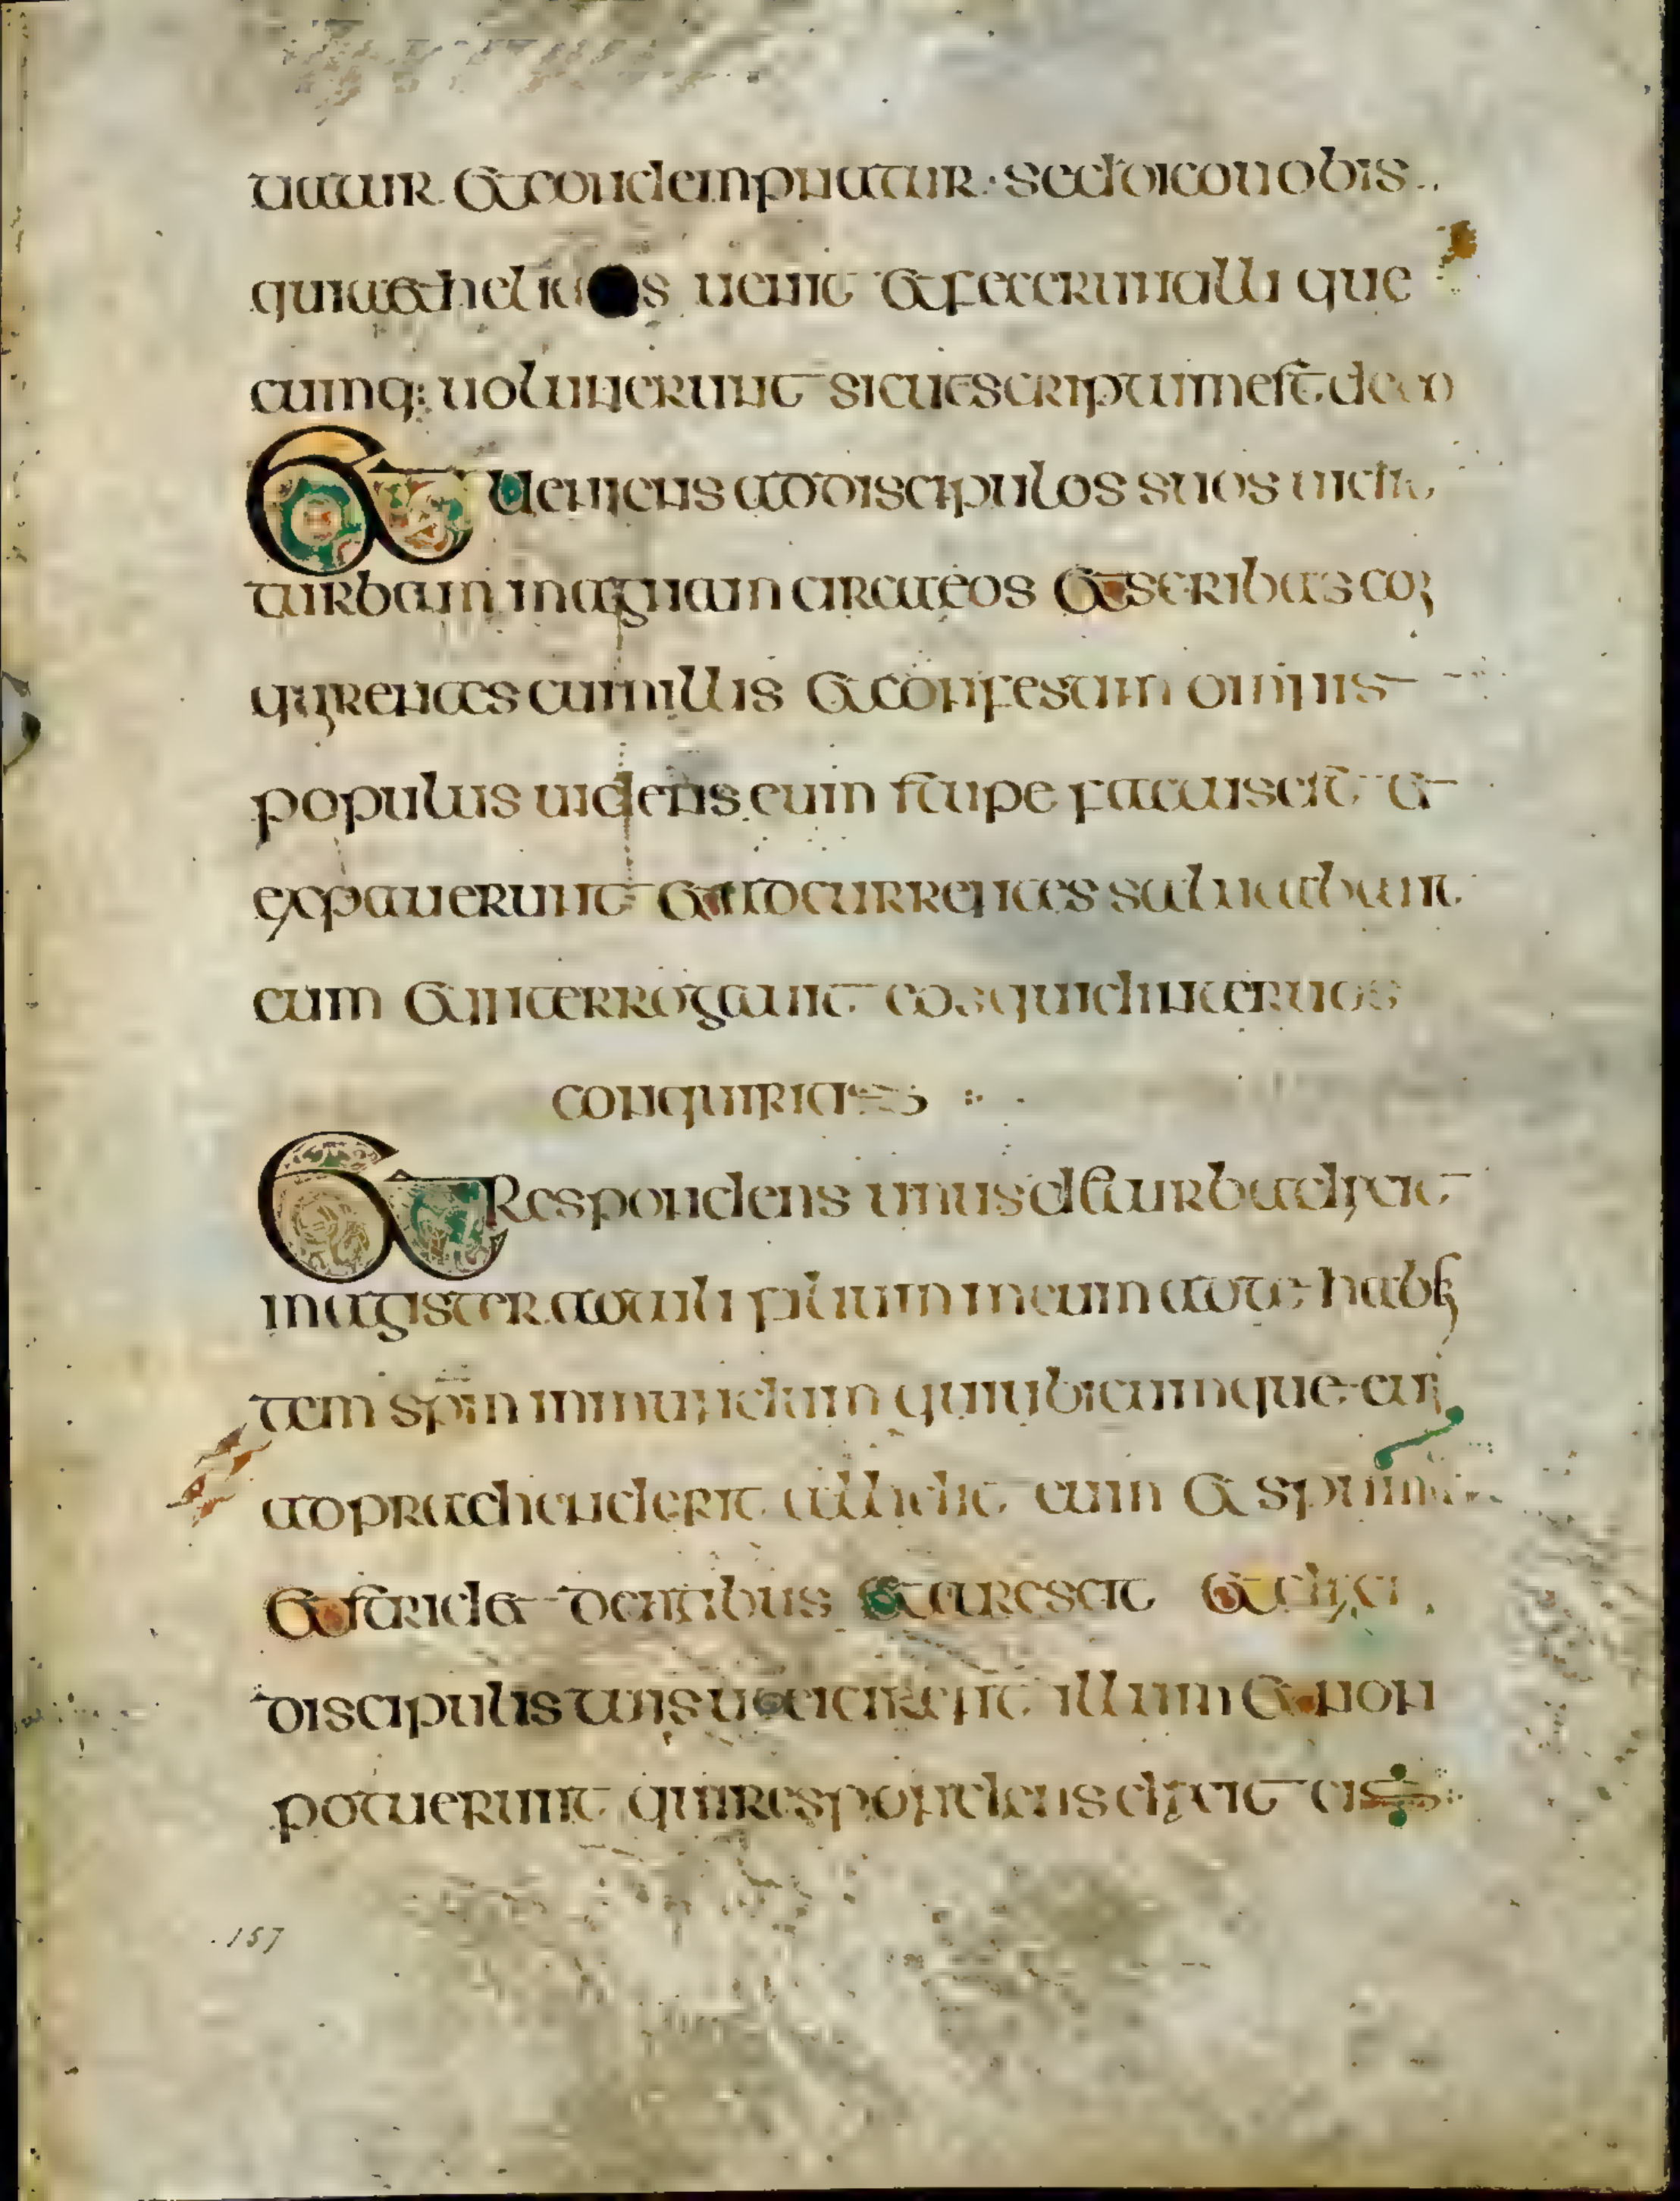 tiatur et condempnatur · sed dico uobis
quia et helias uenit et fecerunt illi que
cumq; uoluuerunt sicut scriptum est de eo
Et ueniens ad discipulos suos uidit
turbam magnam circa eos et scribas co
qyrentes cum illis et confestim omnis
populus uidens eum stupefactus est et
expauerunt et adcurrentes salutabant
eum et interrogauit eos quid inter uos
conquiritis
Et respondens unus de turba dixit
magister adtuli filium meum ad te habe
tem spm inmundum qui ubicumque eu
adpraehenderit allidit eum et spumat
et stridet dentibus et arescit et dixi
discipulis tuis ut eicerent illum et non
potuerunt qui respondens dixit eis
157